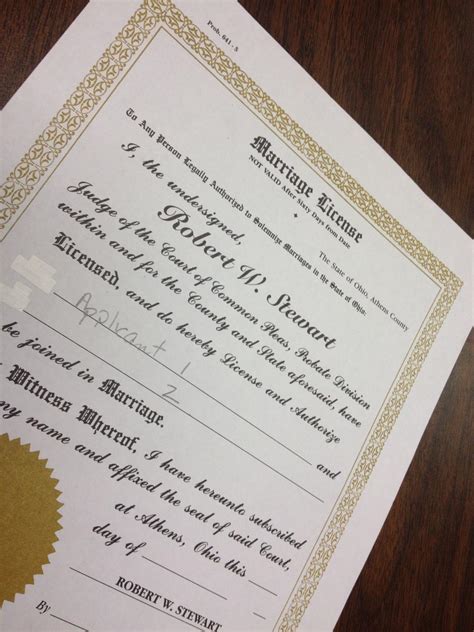 Prob. 641 - S
Marriage License
NOT VALID After Sixty Days from Date
The State of Ohio, Athens County
To Any Person Legally Authorized to Solemnize Marriages in the State of Ohio:
I, the undersigned,
Robert W. Stewart
Judge of the Court of Common Pleas, Probate Division
within and for the County and State aforesaid, have
Licensed, and do hereby License and Authorize
Applicant 1 and
2
be joined in Marriage.
Witness Whereof, I have hereunto subscribed
my name and affixed the seal of said Court,
at Athens, Ohio this
day of
ROBERT W. STEWART
By